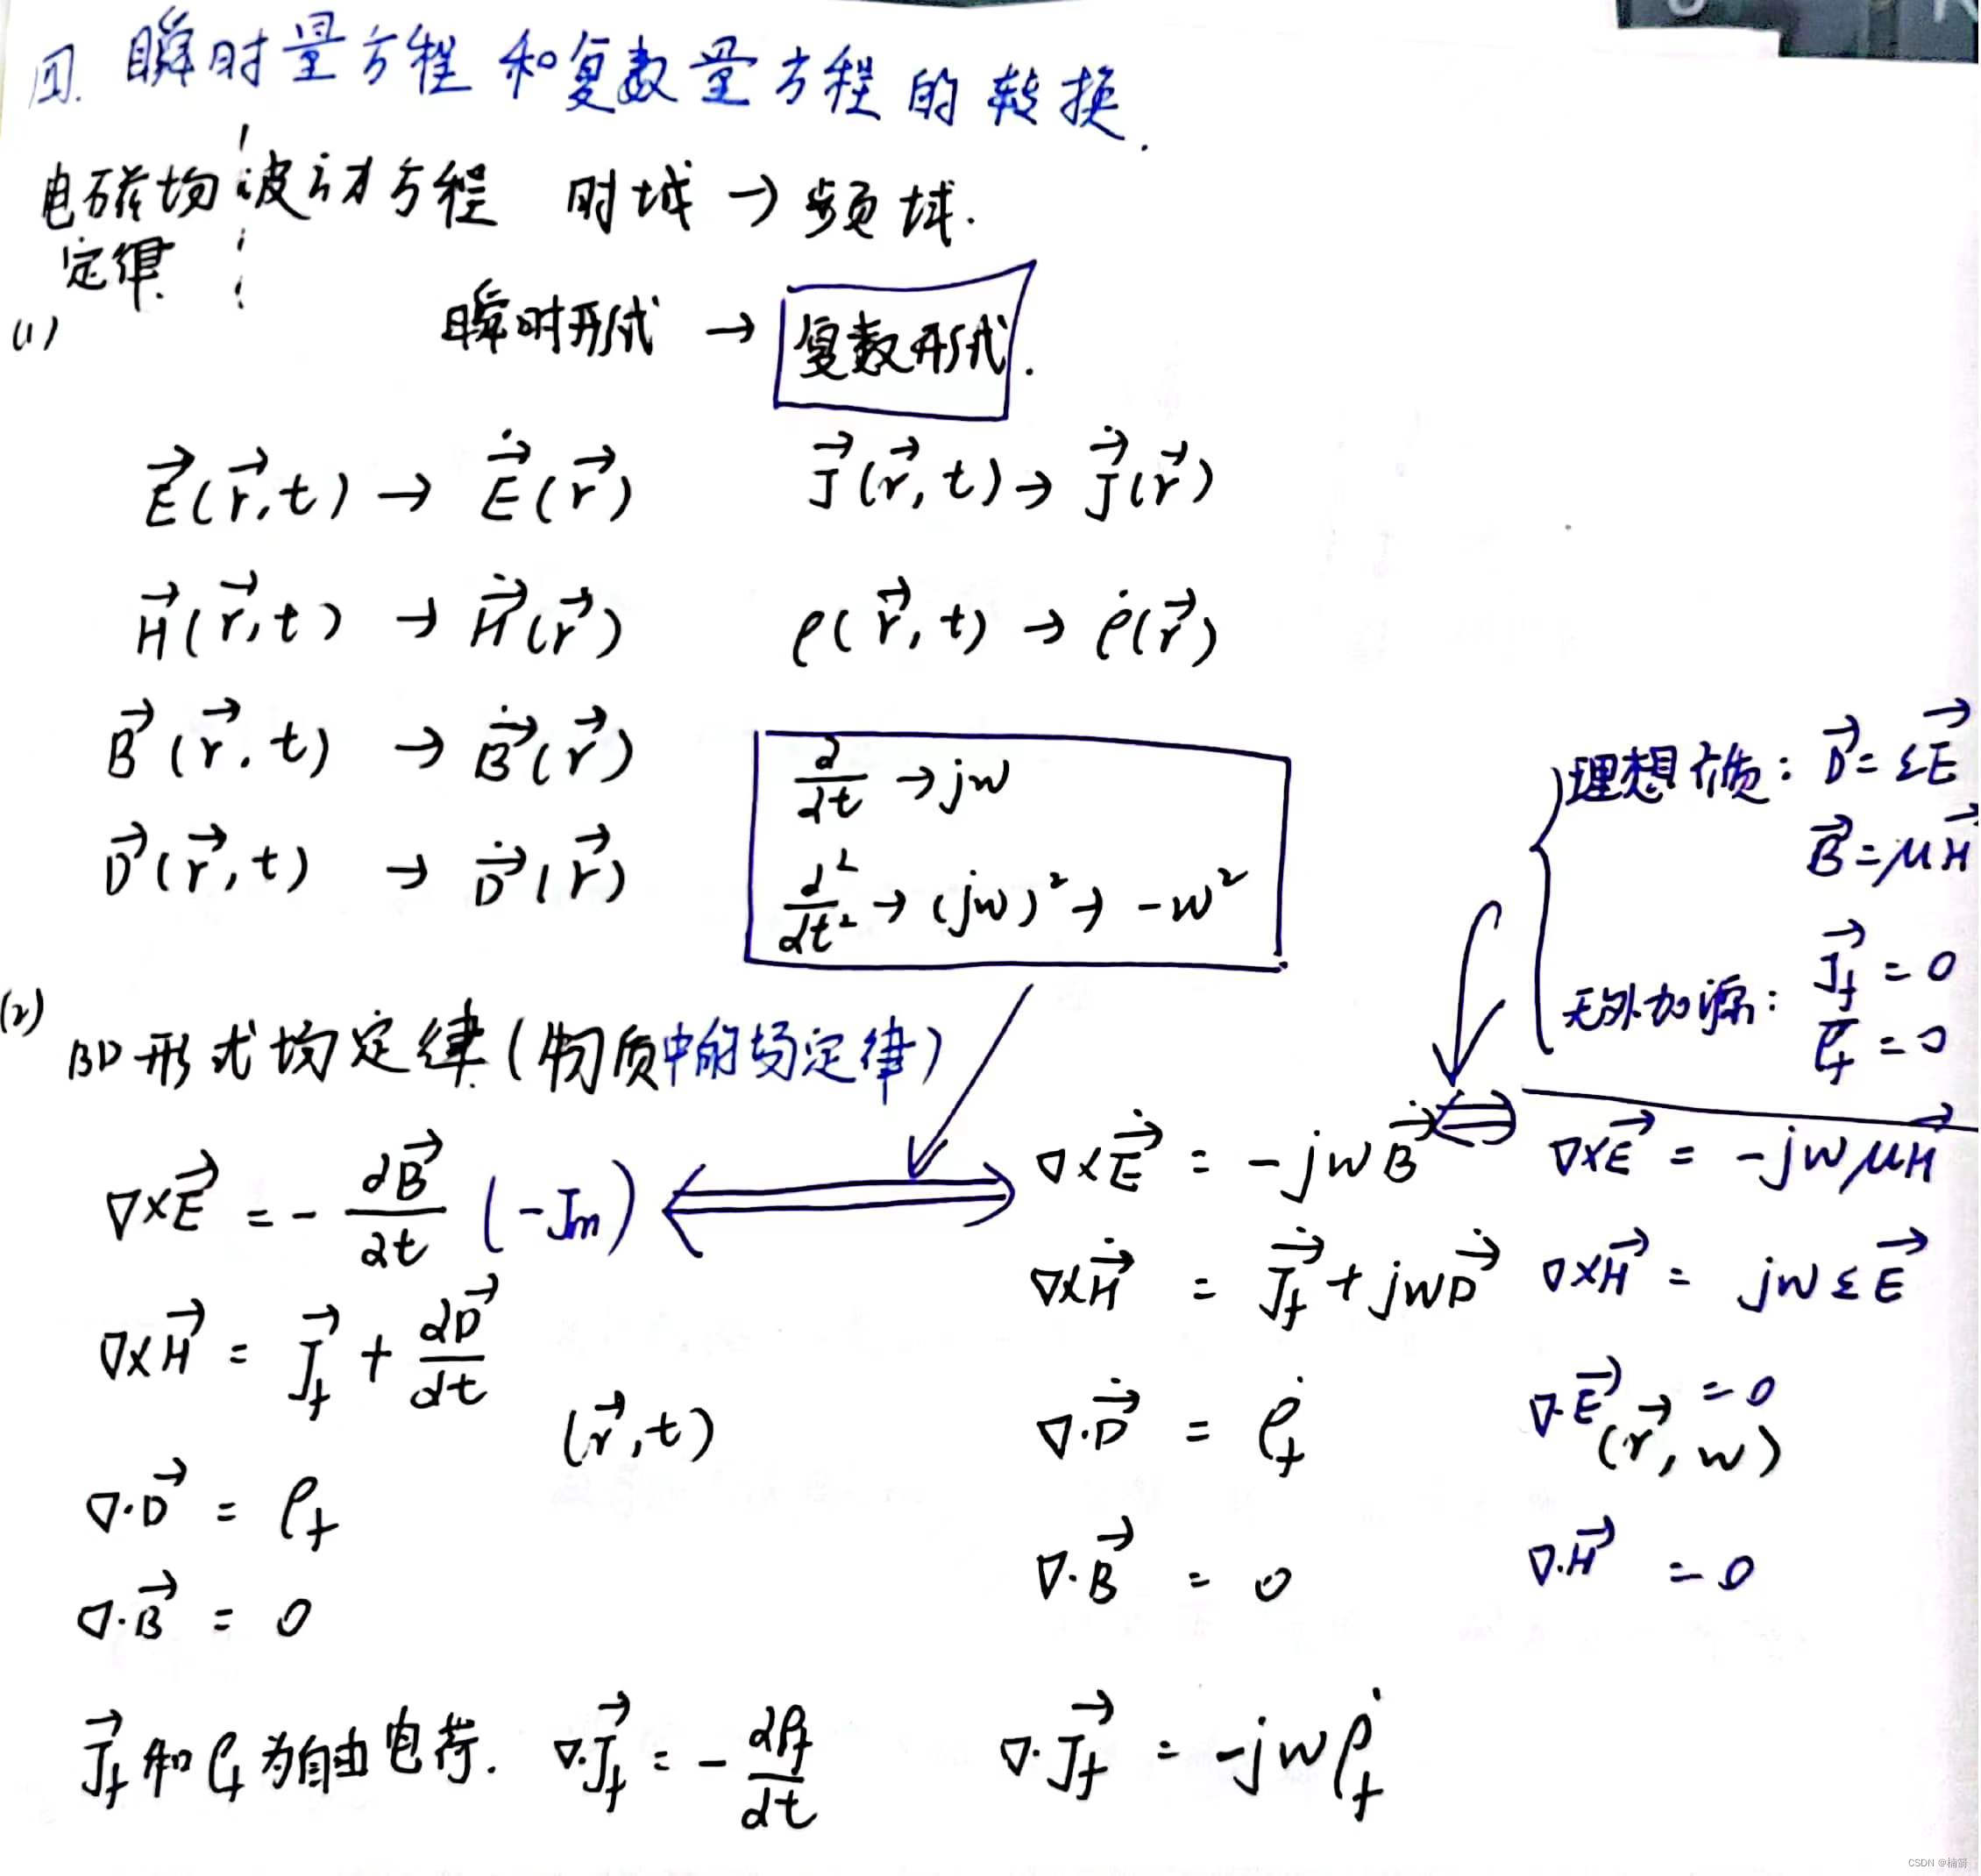 四. 瞬时量方程和复数量方程的转换.
电磁场定律 波动方程 时域 → 频域.
(1) 瞬时形式 → 复数形式.
E⃗(r⃗,t) → Ė⃗(r⃗) J⃗(r⃗,t) → J̇⃗(r⃗)
H⃗(r⃗,t) → Ḣ⃗(r⃗) ρ(r⃗,t) → ρ̇(r⃗)
B⃗(r⃗,t) → Ḃ⃗(r⃗)
D⃗(r⃗,t) → Ḋ⃗(r⃗)
∂/∂t → jw
∂²/∂t² → (jw)² → -w²
理想介质: D⃗ = εE⃗
B⃗ = μH⃗
无外加源: J⃗f = 0
ρf = 0
(2) BD形式场定律(物质中的场定律)
∇×E⃗ = - ∂B⃗/∂t (-Jm) ⟺ ∇×Ė⃗ = -jwḂ⃗ ⟺ ∇×E⃗ = -jwμH⃗
∇×H⃗ = J⃗f + ∂D⃗/∂t ∇×Ḣ⃗ = J̇⃗f + jwḊ⃗ ∇×H⃗ = jwεE⃗
(r⃗,t)
∇·D⃗ = ρf ∇·Ḋ⃗ = ρ̇f ∇·E⃗ = 0
(r⃗,w)
∇·B⃗ = 0 ∇·B⃗ = 0 ∇·H⃗ = 0
J⃗f 和 ρf 为自由电荷. ∇·J⃗f = - ∂ρf/∂t ∇·J⃗f = -jwρ̇f